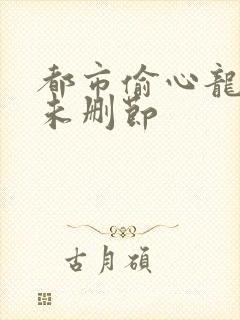 都市偷心龍
未删節
古月碩